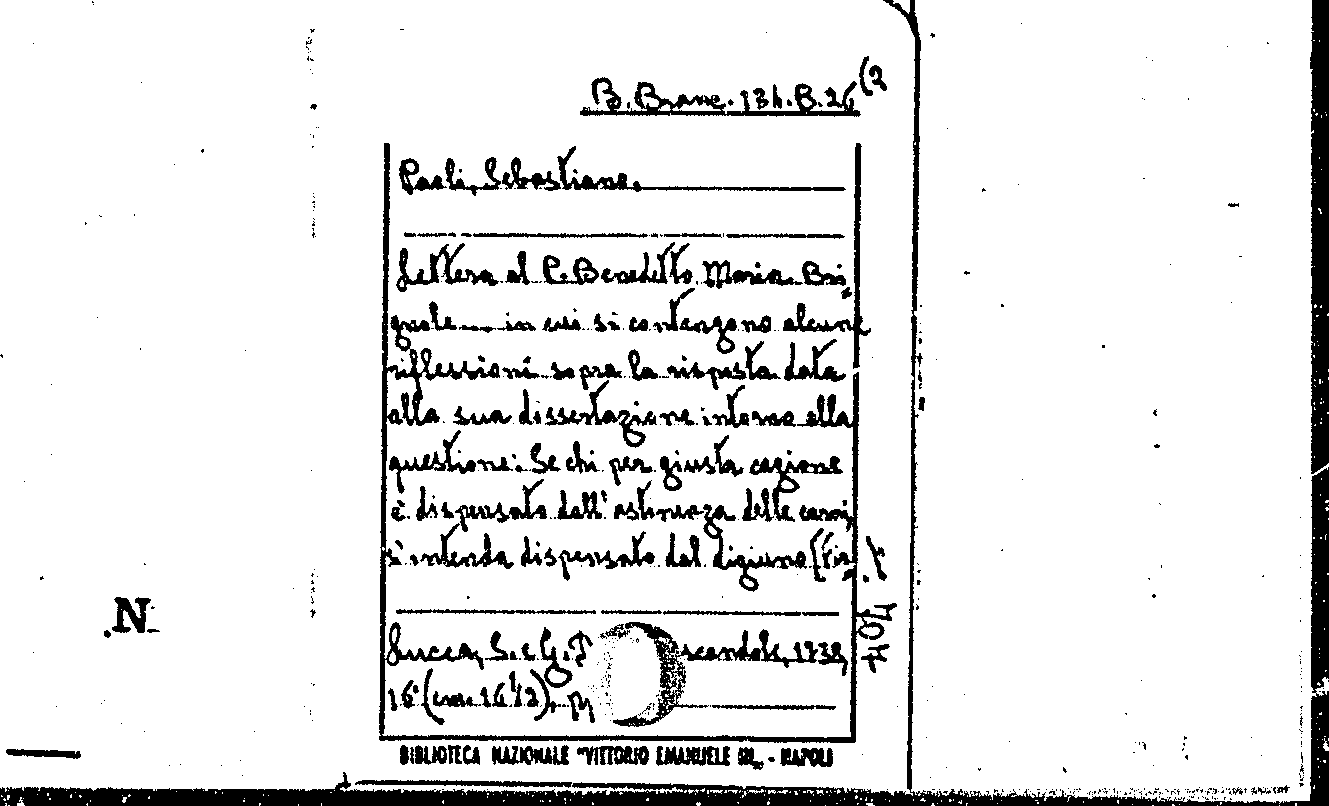 B. Branc. 134. B. 26 (2
Paoli, Sebastiano.
Lettera al P. Benedetto Maria Bri-
gnole.... in cui si contengono alcune
riflessioni sopra la risposta data
alla sua dissertazione intorno alla
questione: Se chi per giusta cagione
è dispensato dall'astinenza delle carni,
s'intenda dispensato dal digiuno
Lucca, S. e G. D scandoli, 1738,
16° (cm. 16 1/2),
BIBLIOTECA NAZIONALE "VITTORIO EMANUELE III„ - NAPOLI
N.